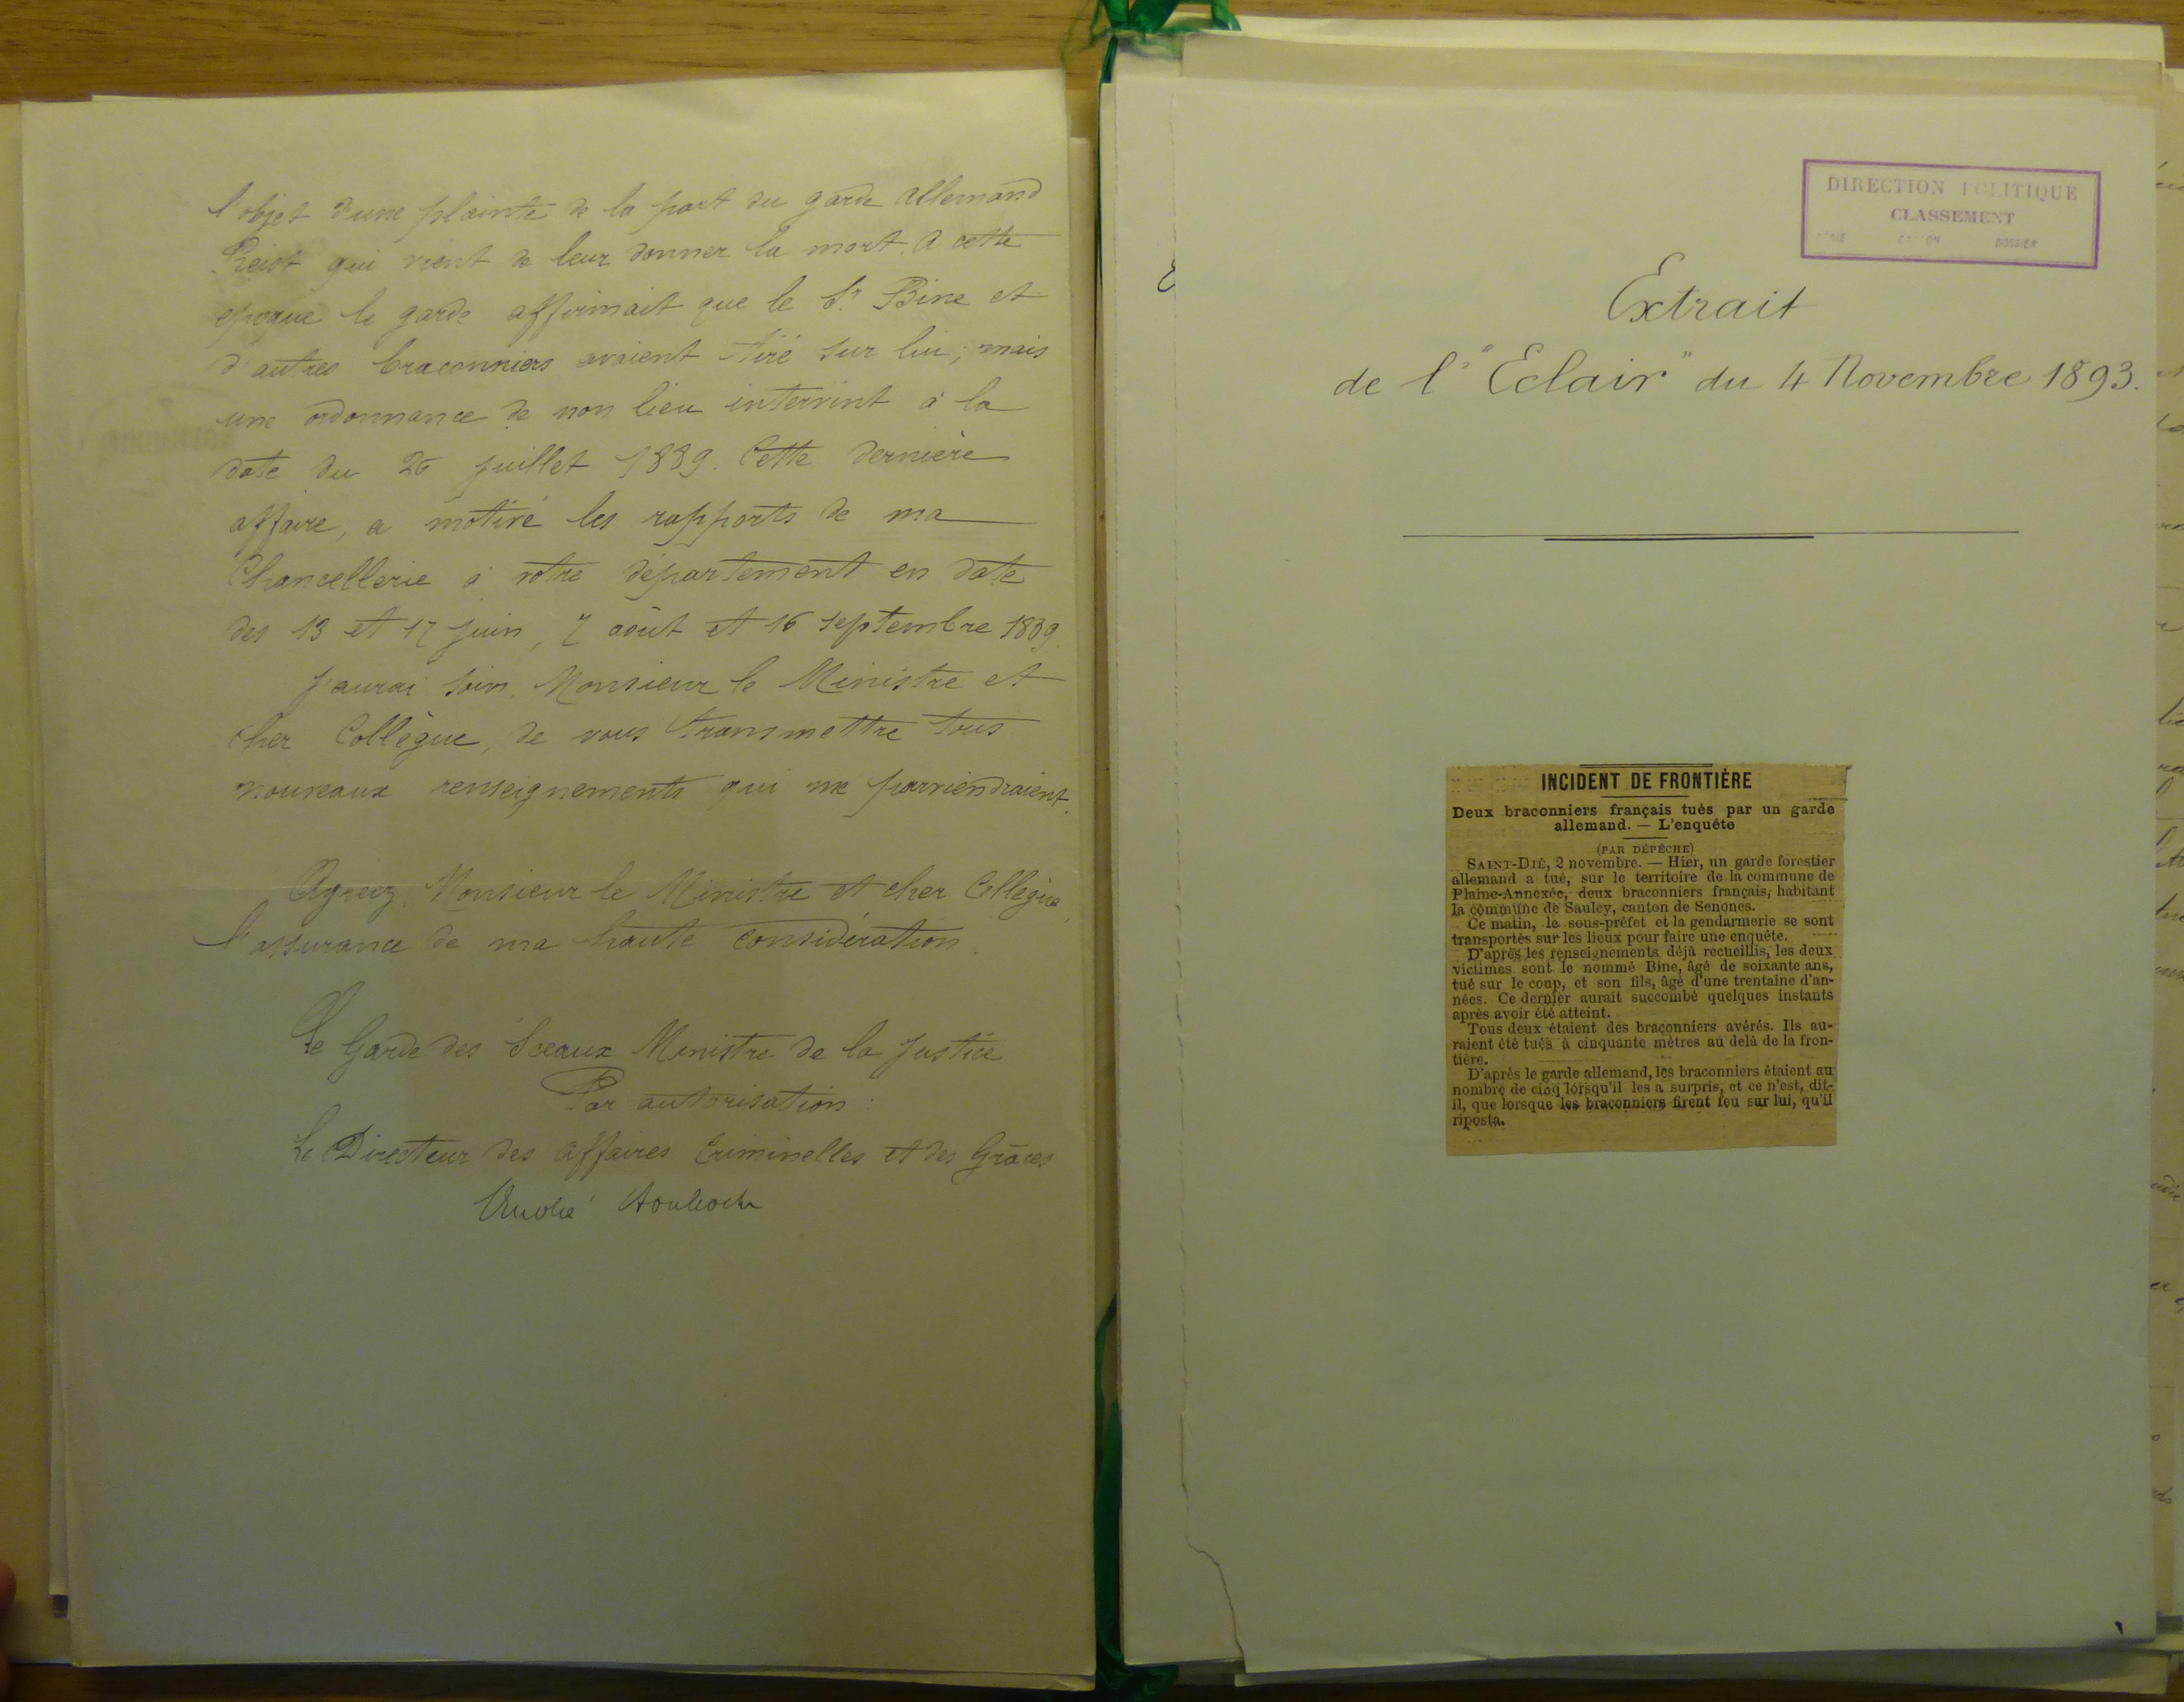 l'objet d'une plainte de la part du garde allemand
Reist qui vient de leur donner la mort. A cette
epoque le garde affirmait que le Sr. Bine et
d'autres braconniers avaient tiré sur lui; mais
une ordonnance de non lieu intervint à la
date du 26 juillet 1889. Cette dernière
affaire, a motivé les rapports de ma
Chancellerie à votre département en date
des 13 et 17 juin, 7 août et 16 septembre 1889.
J'aurai soin, Monsieur le Ministre et
cher Collègue, de vous transmettre tous
nouveaux renseignements qui me parviendraient.
Agréez, Monsieur le Ministre et cher Collègue,
l'assurance de ma haute considération.
Le Garde des Sceaux Ministre de la Justice
Par autorisation:
Le Directeur des affaires Criminelles et des Grâces
André
DIRECTION POLITIQUE
CLASSEMENT
SÉRIE CARTON DOSSIER
Extrait
de l'"Eclair" du 4 Novembre 1893.
INCIDENT DE FRONTIÈRE
Deux braconniers français tués par un garde
allemand. — L'enquête
(PAR DÉPÊCHE)
SAINT-DIÉ, 2 novembre. — Hier, un garde forestier
allemand a tué, sur le territoire de la commune de
Plaine-Annexée, deux braconniers français, habitant
la commune de Sauley, canton de Senones.
Ce matin, le sous-préfet et la gendarmerie se sont
transportés sur les lieux pour faire une enquête.
D'après les renseignements déjà recueillis, les deux
victimes sont le nommé Bine, âgé de soixante ans,
tué sur le coup, et son fils, âgé d'une trentaine d'an-
nées. Ce dernier aurait succombé quelques instants
après avoir été atteint.
Tous deux étaient des braconniers avérés. Ils au-
raient été tués à cinquante mètres au delà de la fron-
tière.
D'après le garde allemand, les braconniers étaient au
nombre de cinq lorsqu'il les a surpris, et ce n'est, dit-
il, que lorsque les braconniers firent feu sur lui, qu'il
riposta.